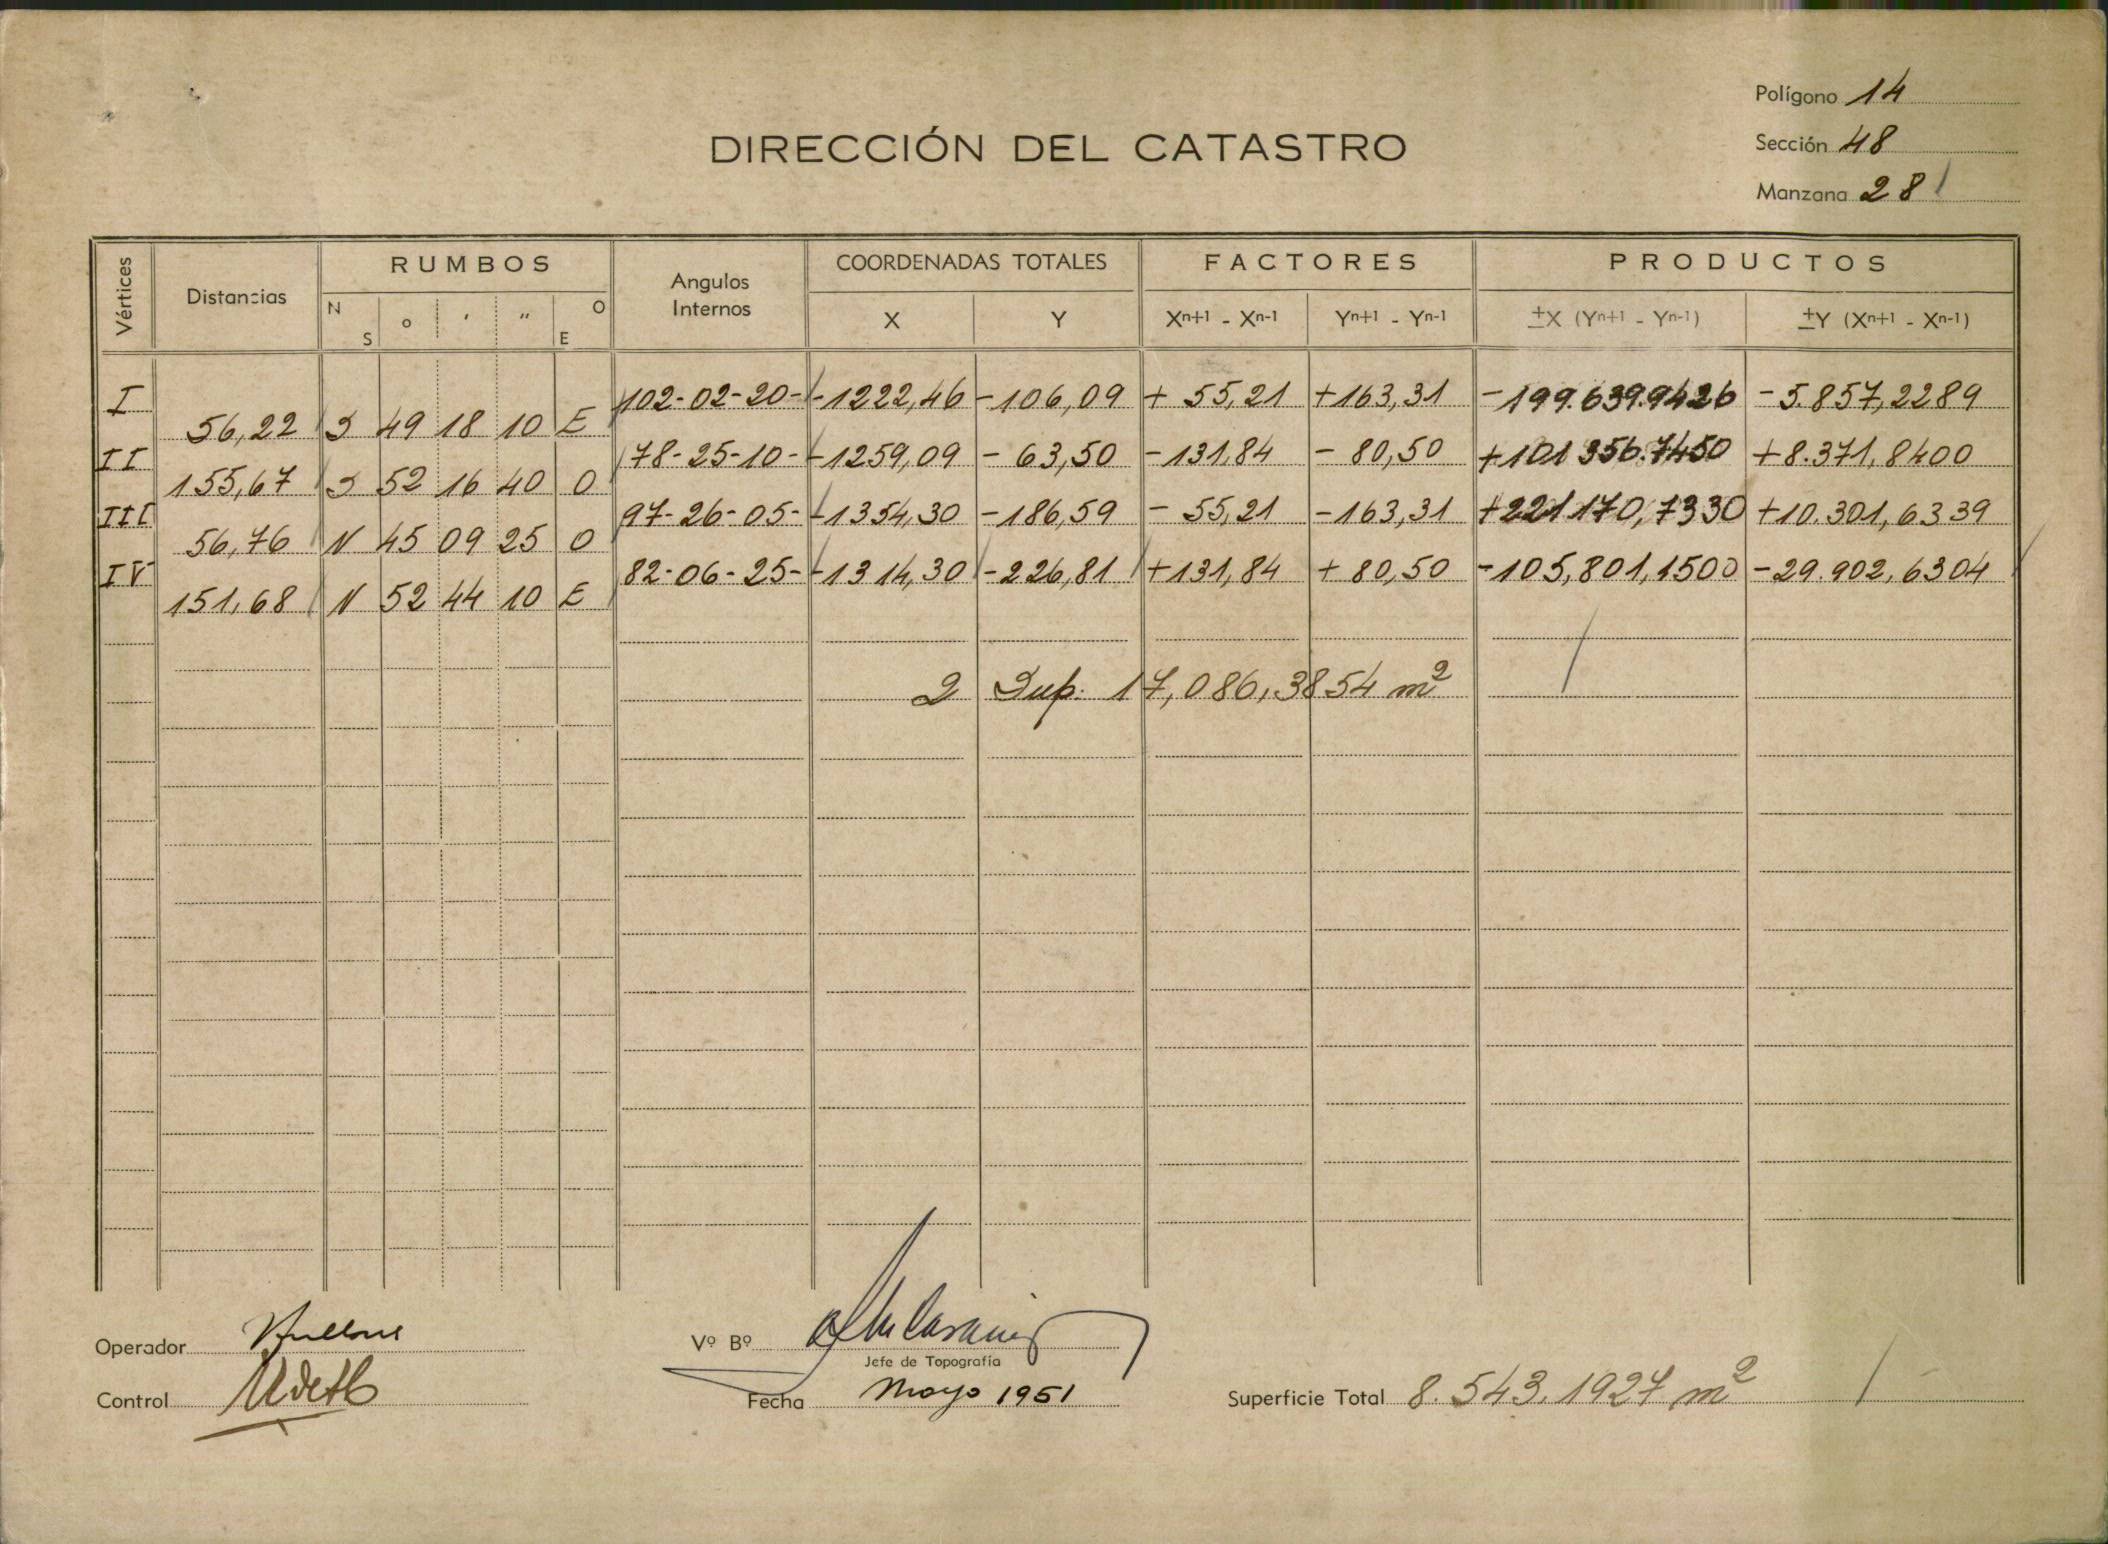 Polígono 14
DIRECCIÓN DEL CATASTRO
Sección 48
Manzana 28
Vértices Distancias RUMBOS Angulos Internos COORDENADAS TOTALES FACTORES PRODUCTOS
N S o ' " O E X Y Xn+1 - Xn-1 Yn+1 - Yn-1 ±X (Yn+1 - Yn-1) ±Y (Xn+1 - Xn-1)
I 102-02-20- -1222,46 -106,09 + 55,21 +163,31 -199.639.9426 -5.857,2289
56,22 S 49 18 10 E
II 78-25-10- -1259,09 - 63,50 -131,84 - 80,50 +101 356.7450 +8.371,8400
155,67 S 52 16 40 O
III 97-26-05- -1354,30 -186,59 - 55,21 -163,31 +221170,7330 +10.301,6339
56,76 N 45 09 25 O
IV 82-06-25- -1314,30 -226,81 +131,84 + 80,50 -105,801,1500 -29.902,6304
151,68 N 52 44 10 E
2 Sup. 17,086,3854 m²
Operador
Vº Bº
Jefe de Topografía
Control
Fecha Mayo 1951
Superficie Total 8.543.1927 m²